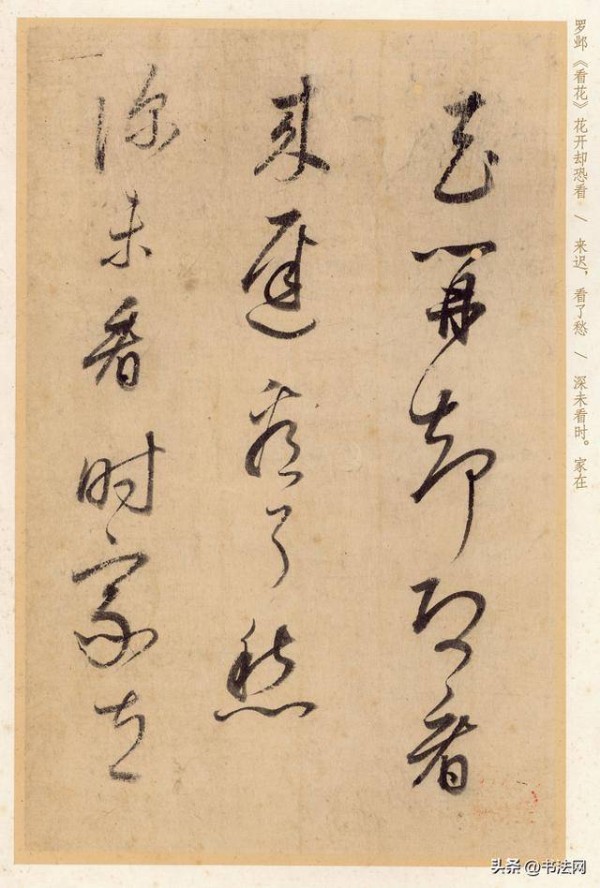 罗邺《看花》花开却恐看 / 来迟，看了愁 / 深未看时。家在
花開却恐看
来遲看了愁
深未看时家在
头条 @书法网